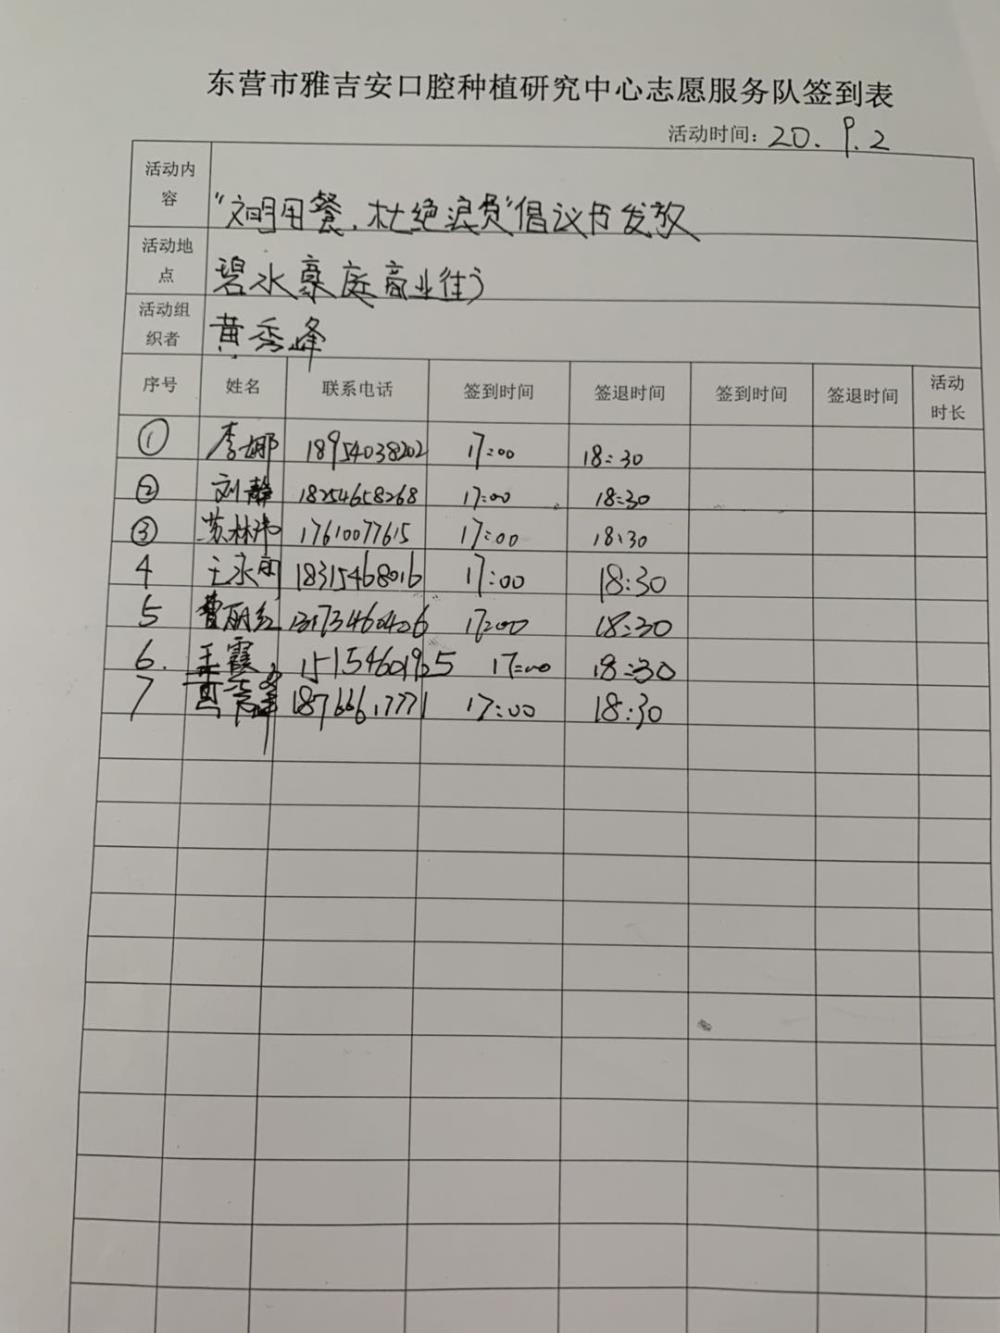 东营市雅吉安口腔种植研究中心志愿服务队签到表
活动时间：20.9.2
活动内容 "文明用餐、杜绝浪费"倡议书发放
活动地点 碧水豪庭商业街
活动组织者 黄秀峰
序号 姓名 联系电话 签到时间 签退时间 签到时间 签退时间 活动时长
① 李娜 18954038202 17:00 18:30
② 刘静 18254658268 17:00 18:30
③ 苏林沛 17610077615 17:00 18:30
4 王永 18315468016 17:00 18:30
5 曹丽红 17:00 18:30
6. 王霞 15154601925 17:00 18:30
7 黄秀峰 18766617771 17:00 18:30